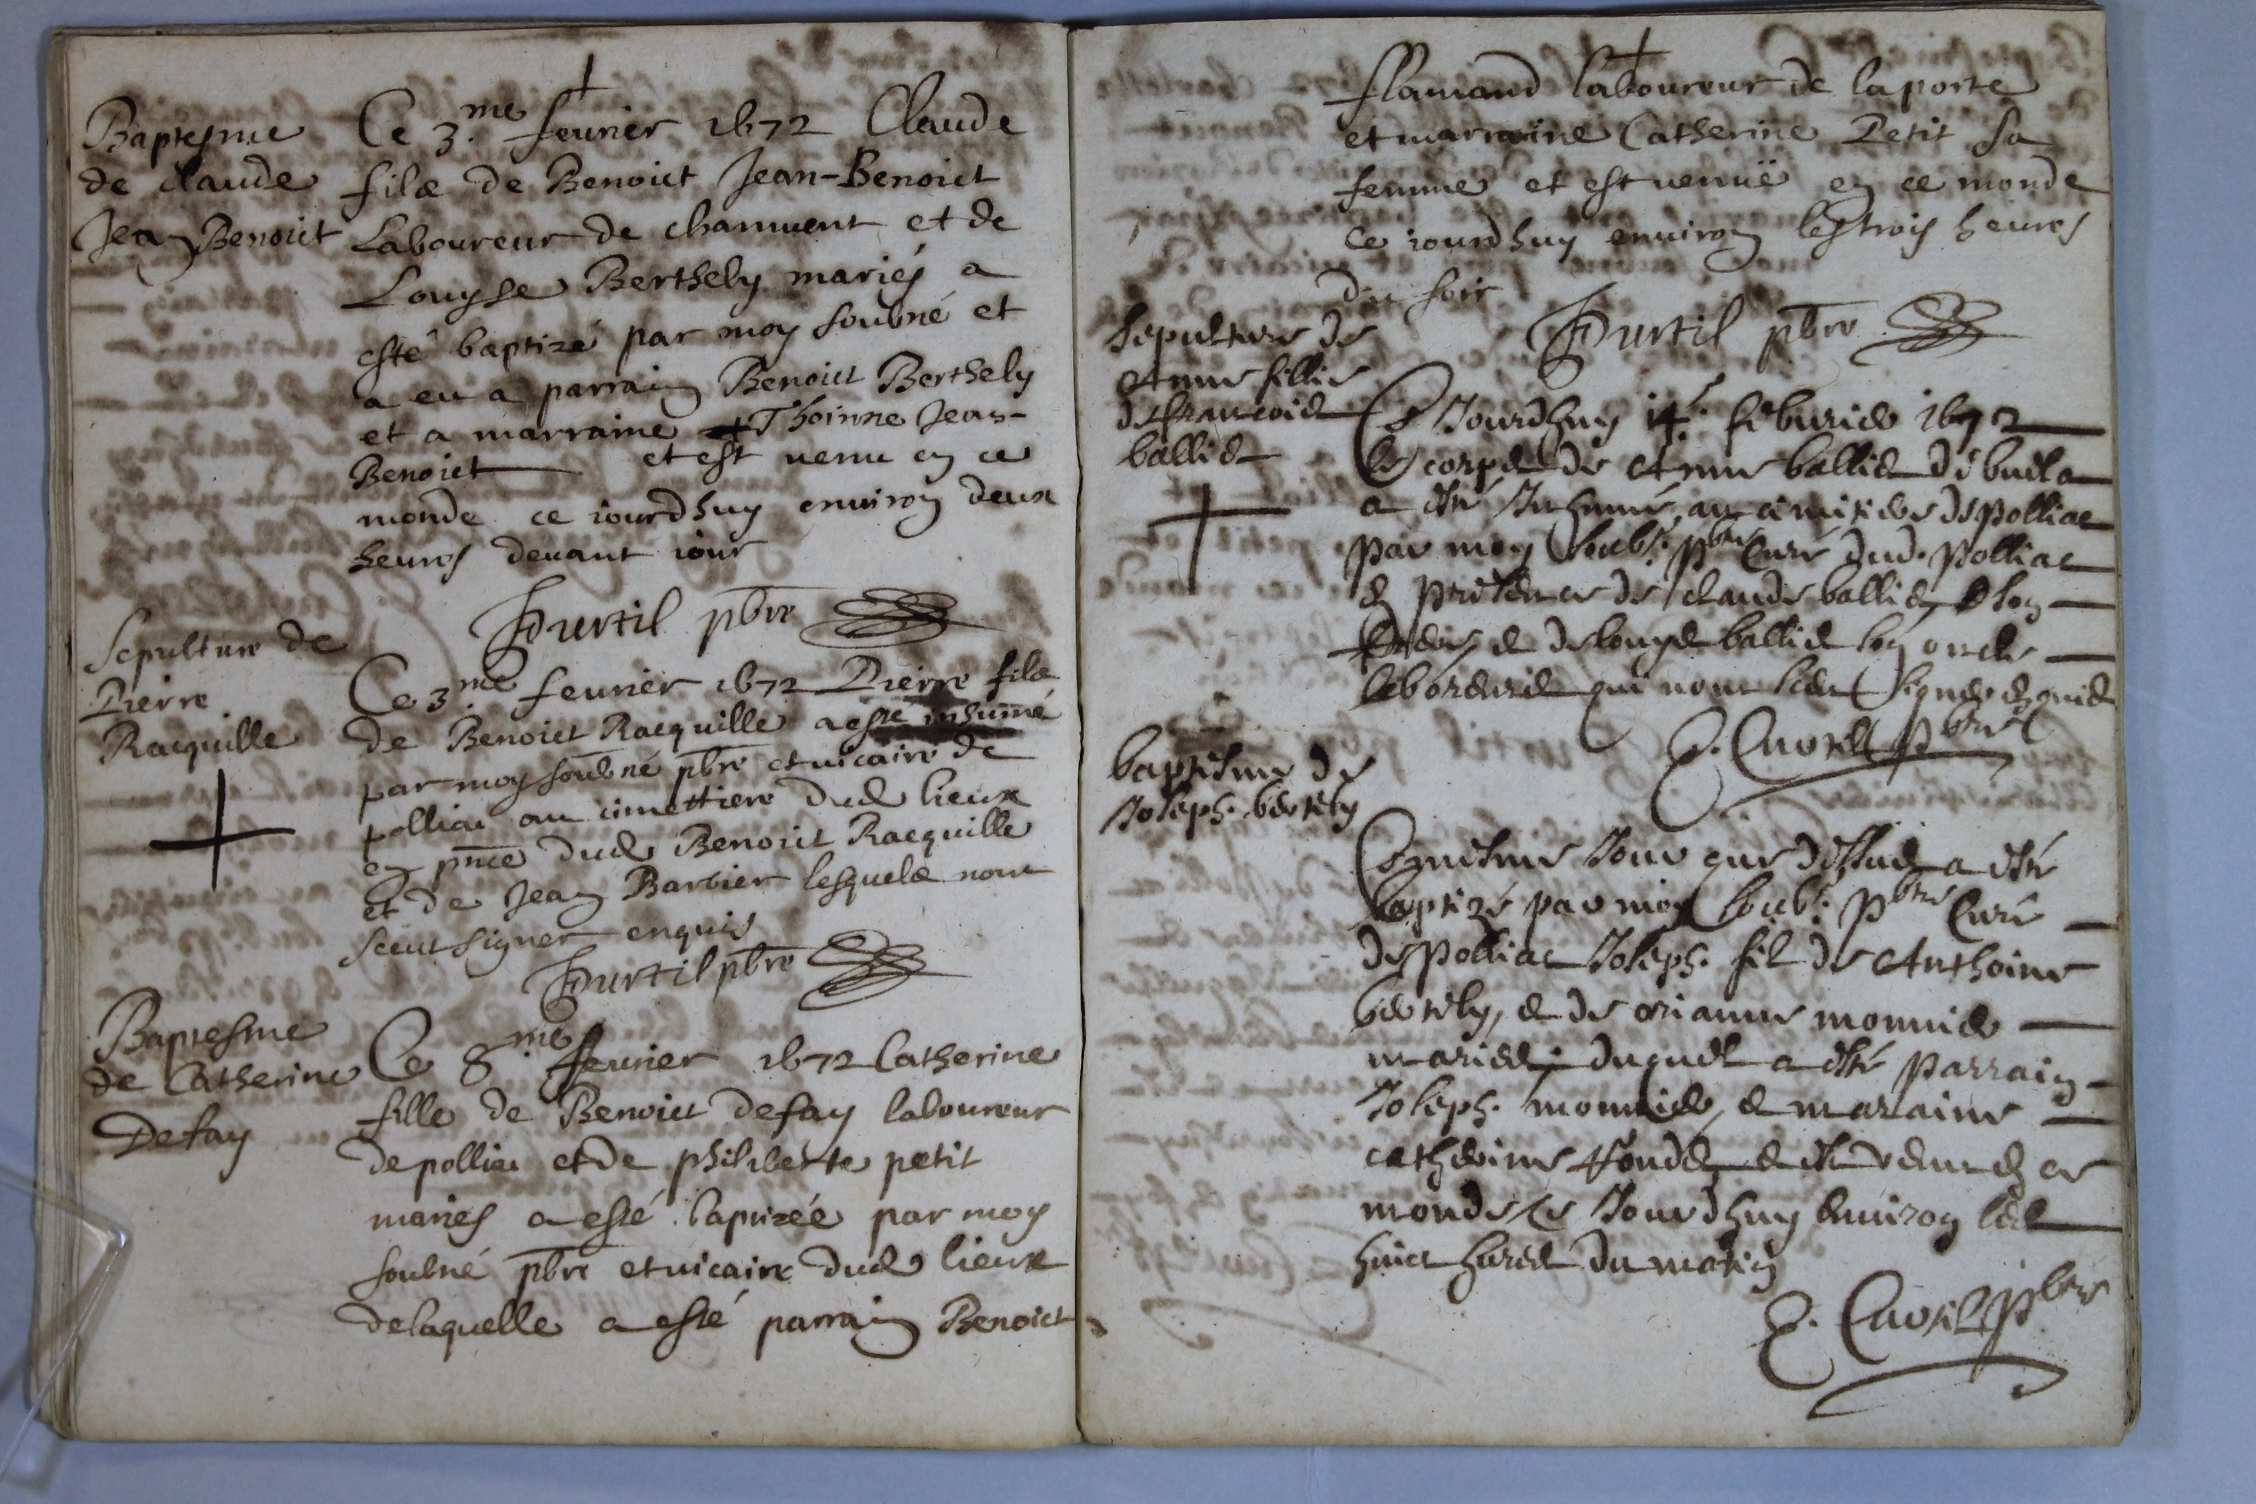 Baptesme
de claude
Jean Benoict
Ce 3.me feurier 1672 Claude
filz de Benoict Jean-Benoict
Laboureur de chanuent et de
Louyse Berthely mariés a
esté baptizé par moy soubné et
a eu a parrain Benoict Berthely
et a marraine Thoinne Jean-
Benoict et est uenu en ce
monde ce iourdhuy enuiron deux
heures deuant iour
Durtil pbre
Sepulture de
Pierre
Racquille
Ce 3.me feurier 1672 Pierre filz
de Benoict Racquille a esté inhumé
par moy soubné pbre et uicaire de
polliac au cimettiere dud lieux
en pnce dud Benoict Racquille
et de Jean Barbier lesquelz nont
sceut signer enquis
Durtil pbre
Baptesme
de Catherine
Defay
Ce 8.me feurier 1672 Catherine
fille de Benoict defay laboureur
de polliac et de philiberte petit
mariés a esté baptizée par moy
soubné pbre et uicaire dud lieux
delaquelle a esté parrain Benoict
flamand laboureur de la porte
et marraine Catherine Petit sa
femme et est uenuë en ce monde
ce iourdhuy enuiron les trois heures
du soir
Durtil pbre
Sepulture de
Anne fillie
de francois
ballid
Ce Jourdhuy 14e feburier 1672
le corps de Anne ballid de
a esté Inhumé au cimitiere de polliac
par moy soubs. pbre Curé dud. polliac
en presence de claude ballid son
et de louys ballid son oncle
laboureurs qui nont sceu signer enquis
C. Cuortil pbre
baptesme de
Joseph. bertely
Ce mesme Jour que dessus a esté
baptizé par moy soubs. pbre Curé
de polliac Joseph. fils de Anthoine
bertely, et de monnier
mariés, duquel a esté parrain
Joseph. monnier, et maraine
catherine et est venu en ce
monde ce Jourdhuy enuiron les
huict heures du matin
C. Cuortil pbre